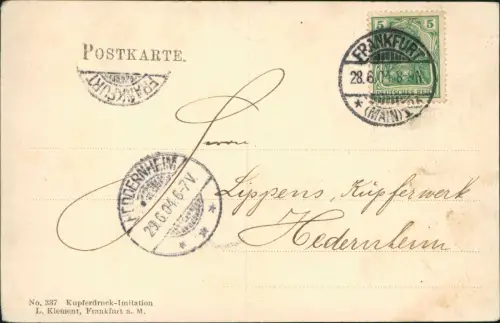 POSTKARTE.
FRANKFURT
5 5
FRANKFURT
28.6.04. 8-9N
* (MAIN) 1
HEDDERNHEIM
29.6.04. 6-7V
Herrn
Lippens, Kupferwerk
Hedernheim
No. 337 Kupferdruck-Imitation
L. Klement, Frankfurt a. M.